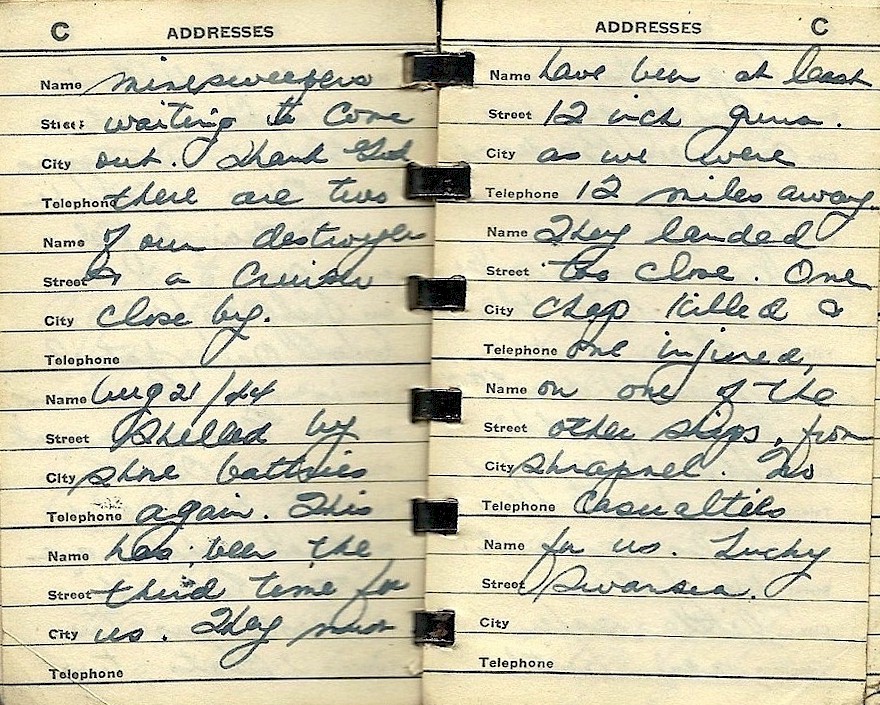 C ADDRESSES
Name minesweepers
Street waiting to come
City out. Thank God
Telephone there are two
Name of our destroyers
Street & a Cruiser
City close by.
Telephone
Name Aug 21/44
Street Shelled by
City shore batteries
Telephone again. This
Name has been the
Street third time for
City us. They must
Telephone
ADDRESSES C
Name have been at least
Street 12 inch guns.
City as we were
Telephone 12 miles away.
Name They landed
Street too close. One
City chap killed &
Telephone one injured,
Name on one of the
Street other ships, from
City shrapnel. No
Telephone Casualties
Name for us. Lucky
Street Swansea.
City
Telephone